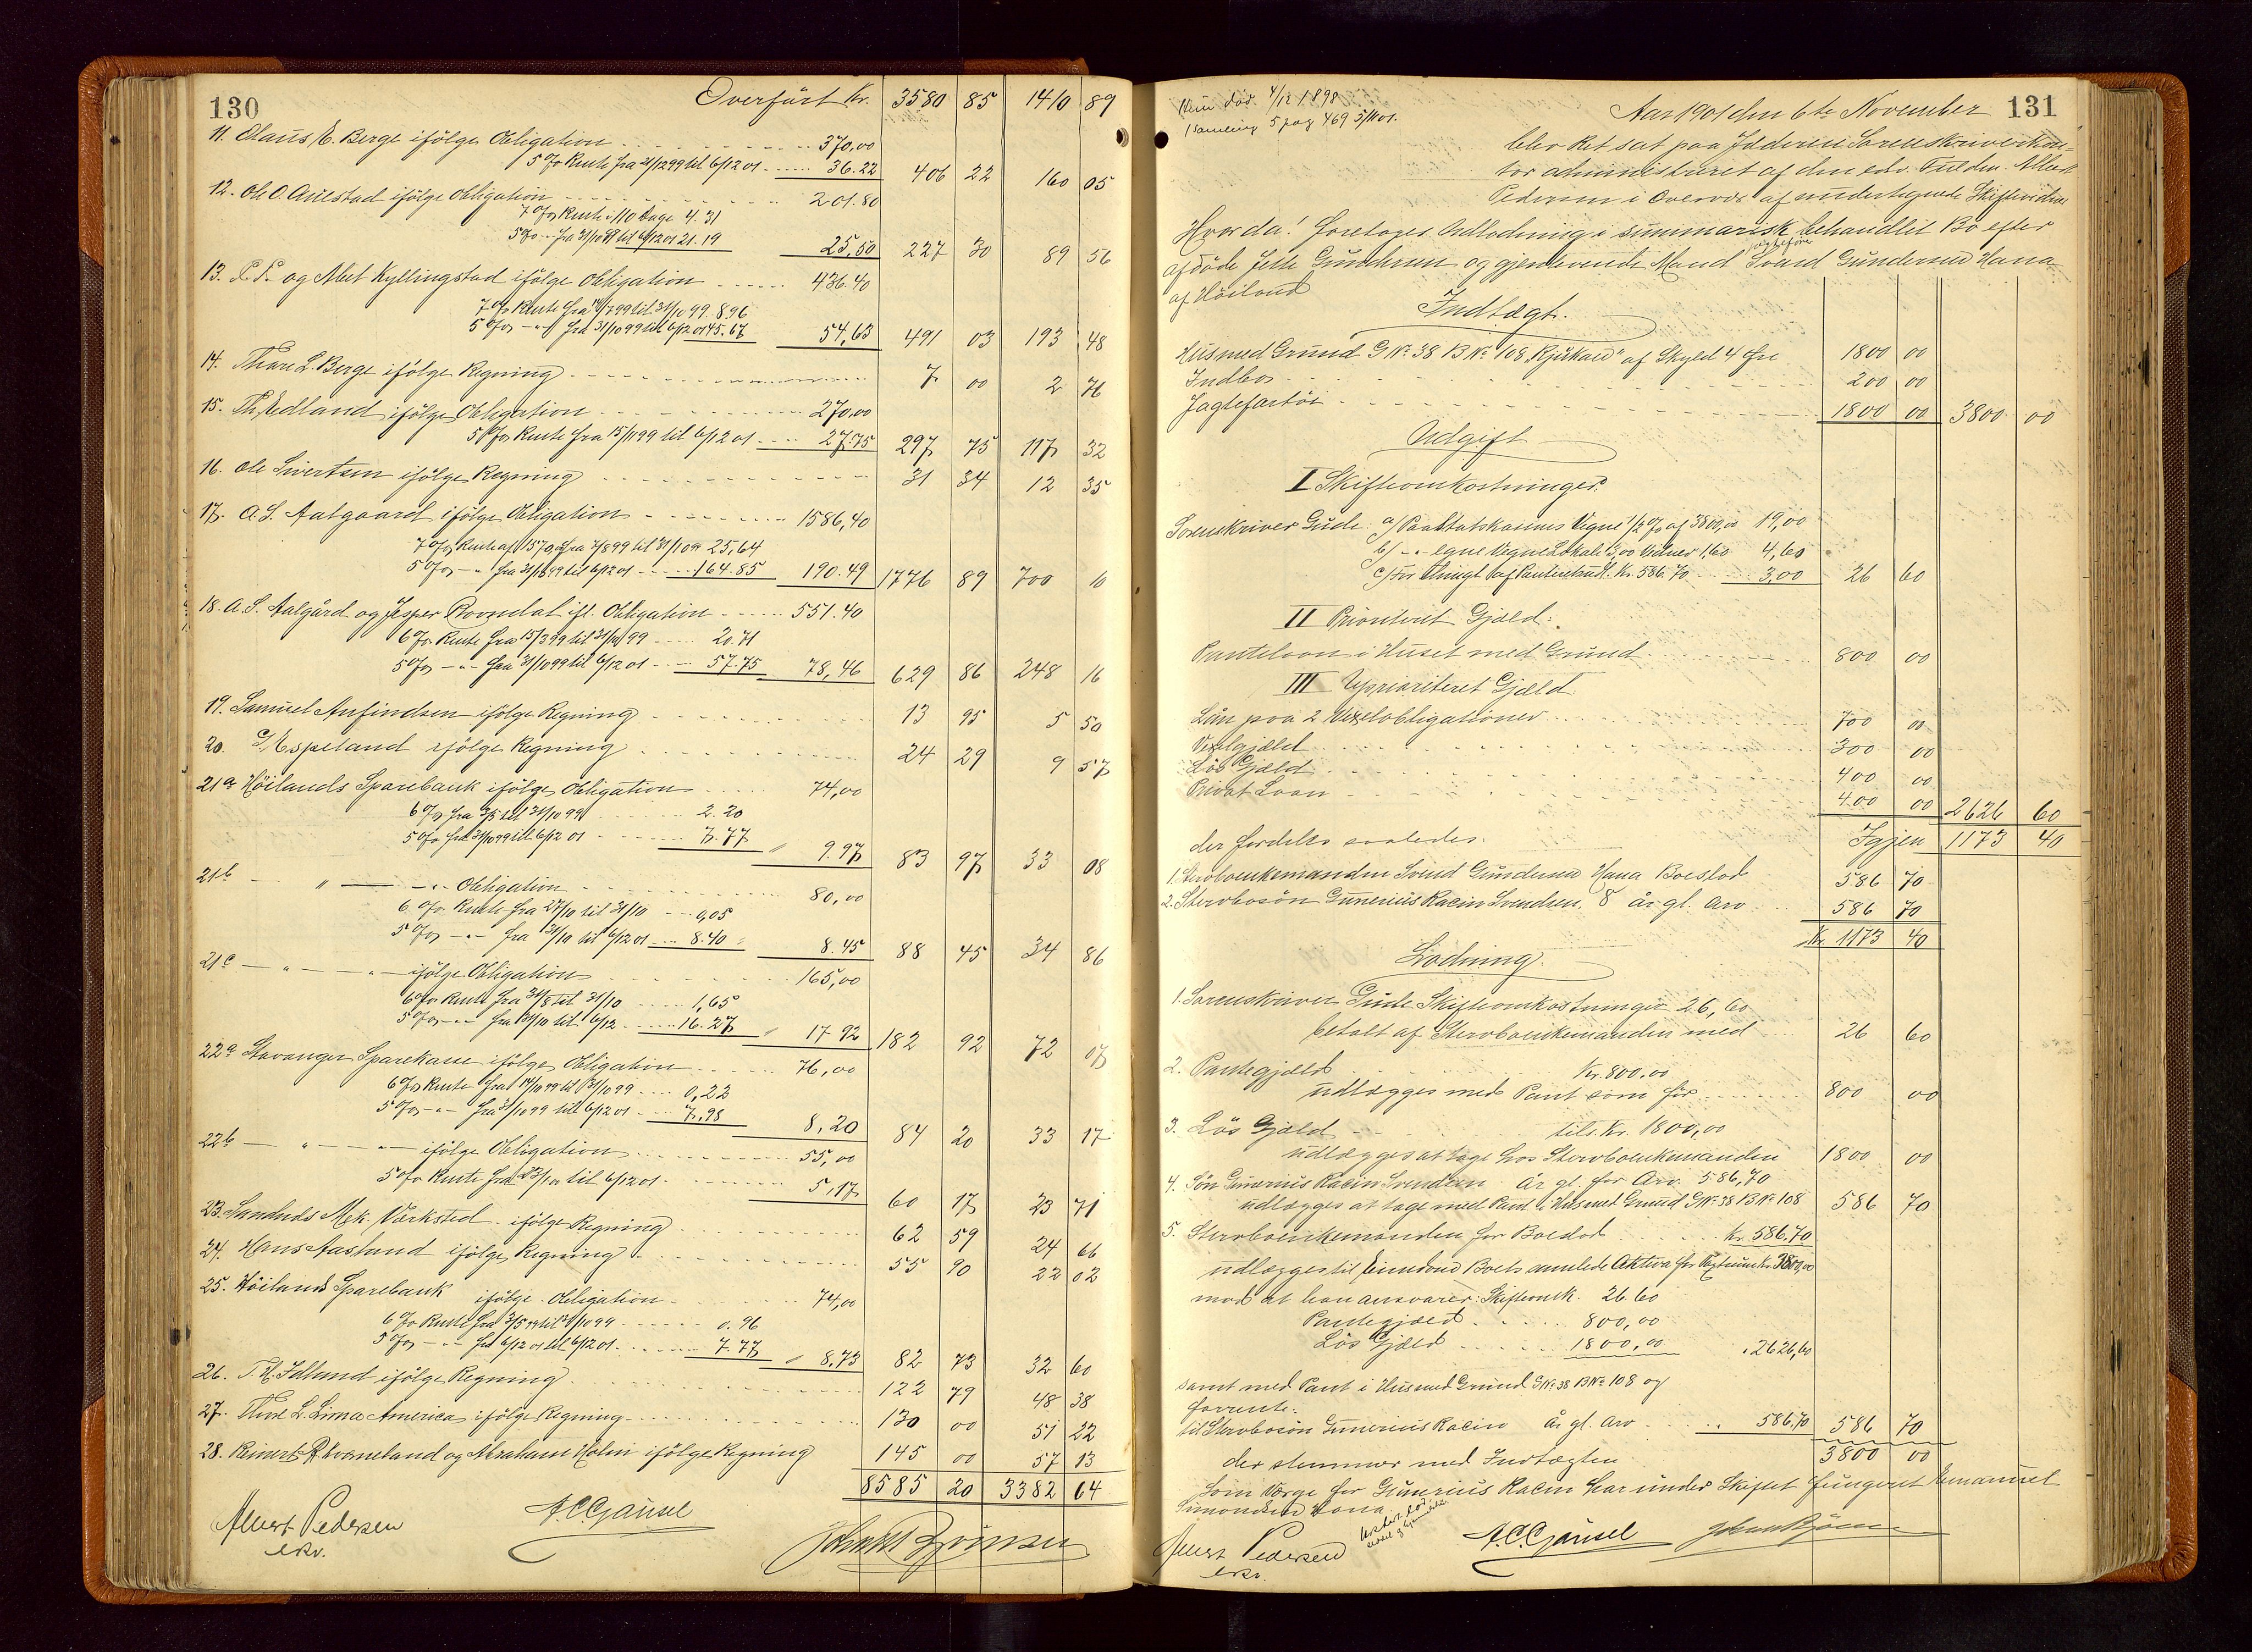 130
Overført Kr. 3580 85 1410 89
11. Olaus E. Berge ifölge Obligation 370,00
5% Rente fra 21/12 99 til 6/12 01 36.22 406 22 160 05
12. Ole O. Auestad ifölge Obligation 201.80
7% Rente i 110 Dage 4.31
5% - fra 31/10 99 til 6/12 01 21.19 25,50 227 30 89 56
13. og Abel Kyllingstad ifölge Obligation 436.40
7% Rente fra 14/7 99 til 31/10 99 8.96
5% -"- fra 31/10 99 til 6/12 01 45.67 54,63 491 03 193 48
14. Thore L. Berge ifölge Regning 7 00 2 76
15. Th. Edland ifölge Obligation 270,00
5% Rente fra 15/11 99 til 6/12 01 27.75 297 75 117 32
16. Ole Sivertsen ifölge Regning 31 34 12 35
17. A. S. Aalgaard ifölge Obligation 1586,40
7% Rente af 1570, fra 7/8 99 til 31/10 99 25,64
5% -"- fra 31/10 99 til 6/12 01 164.85 190.49 1776 89 700 10
18. A. S. Aalgård og Jesper ifl. Obligation 551.40
6% Rente fra 15/3 99 til 31/10 99 20.71
5% -"- fra 31/10 99 til 6/12 01 57.75 78,46 629 86 248 16
19. Samuel Anfindsen ifölge Regning 13 95 5 50
20. Espeland ifölge Regning 24 29 9 57
21a Höilands Sparebank ifölge Obligation 74,00
6% fra 3/5 til 31/10 99 2.20
5% fra 31/10 99 til 6/12 01 7.77 9.97 83 97 33 08
21b - " - -"- Obligation 80,00
6% Rente fra 27/10 til 31/10 0,05
5% -"- fra 31/10 til 6/12 01 8.40 8.45 88 45 34 86
21c - " - " - ifölge Obligation 165,00
6% Rente fra 31/8 til 31/10 1,65
5% -"- fra 31/10 til 6/12 16.27 17 92 182 92 72 07
22a Stavanger Sparekasse ifölge Obligation 76,00
6% Rente fra 14/10 99 til 31/10 99 0,22
5% -"- fra 31/10 99 till 6/12 01 7,98 8,20 84 20 33 17
22b - " - - ifölge Obligation 55,00
5% Rente fra til 6/12 01 5,17 60 17 23 71
23. Sandnes Mek. Værksted ifölge Regning 62 59 24 66
24. Hans Aaslund ifölge Regning 55 90 22 02
25. Höilands Sparebank ifölge Obligation 74,00
6% Rente fra 3/5 99 til 31/10 99 0.96
5% -"- fra 6/12 01 til 6/12 01 7.77 8,73 82 73 32 60
26. T. R. Idland ifölge Regning 122 79 48 38
27. Thore L. Lima America ifölge Regning 130 00 51 22
28. Reinert og Abraham Holm ifölge Regning 145 00 57 13
8585 20 3382 64
Albert Pedersen A.C. Gausel
ekv.
131
död 4/12 1898
Samling 5 pag 469 5/11 01.
Aar 1901 den 6te November
blev Ret sat paa Jæderens Sorenskriverkon-
tor administreret af den edv. Fuldm. Albert
Pedersen i Overvær af undertegnede Skiftevidner
Hvorda: foretoges Udlodning i summarisk behandlet Bo efter
afdöde Jette Gundersen og gjenlevende Mand Jagtefører Svend Gundersen Hana
af Höiland
Indtægt.
Hus med Grund G No 38 B No 108 "Kjökaer" af Skyld 4 Øre 1800 00
Indbo 200 00
Jagtefartöi 1800 00 3800 00
Udgift
I Skifteomkostninger:
Sorenskriver Gude: a/ Paa Statskassens Vegne 1/2 % af 3800,00 19,00
b/ -"- egne Vegne Lokale 3,00 Vidner 1,60 4,60
c/ for af Panteretud. Kr. 586.70 3,00 26 60
II Prioriteret Gjæld:
Pantelaan i Huset med Grund 800 00
III Uprioriteret Gjæld
Lån paa 2 Vexelobligationer 700 00
Vexelgjæld 300 00
Lös Gjæld 400 00
Privat Laan 400 00 2626 60
Igjen 1173 40
der fordeles saaledes:
1. Stervboenkemanden Svend Gundersen Hana Boeslod 586 70
2. Stervbosön Gunerius Racin Svendsen 8 år gl. Arv 586 70
Kr. 1173 40
Lodning.
1. Sorenskriver Gude Skifteomkostninger 26,60
betalt af Stervboenkemanden med 26 60
2. Pantegjæld Kr. 800,00
udlægges med Pant som för 800 00
3. Lös Gjæld tils. Kr. 1800,00
udlægges at tage hos Stervboenkemanden 1800 00
4. Sön Gunerius Racin Svendsen år gl. for Arv 586,70
udlægges at tage med Pant i Hus med Grund G No 38 B No 108 586 70
5. Stervboenkemanden for Boeslod Kr. 586.70
udlægges til Eiendom Boets samlede Aktiva for Kr. 3800,00
mod at han ansvarer: Skifteomk. 26.60
Pantegjæld 800,00
Lös Gjæld 1800,00 " 2626,60
samt med Pant i Hus med Grund G No 38 B No 108 og
forrente:
til Stervbosön Gunerius Racin år gl. Arv 586.70 586 70
der stemmer med Indtægten 3800 00
Som Værge for Gunerius Racin har under Skiftet fungeret Emanuel
Simonsen Hana.
Albert Pedersen A.C. Gausel
ekv.